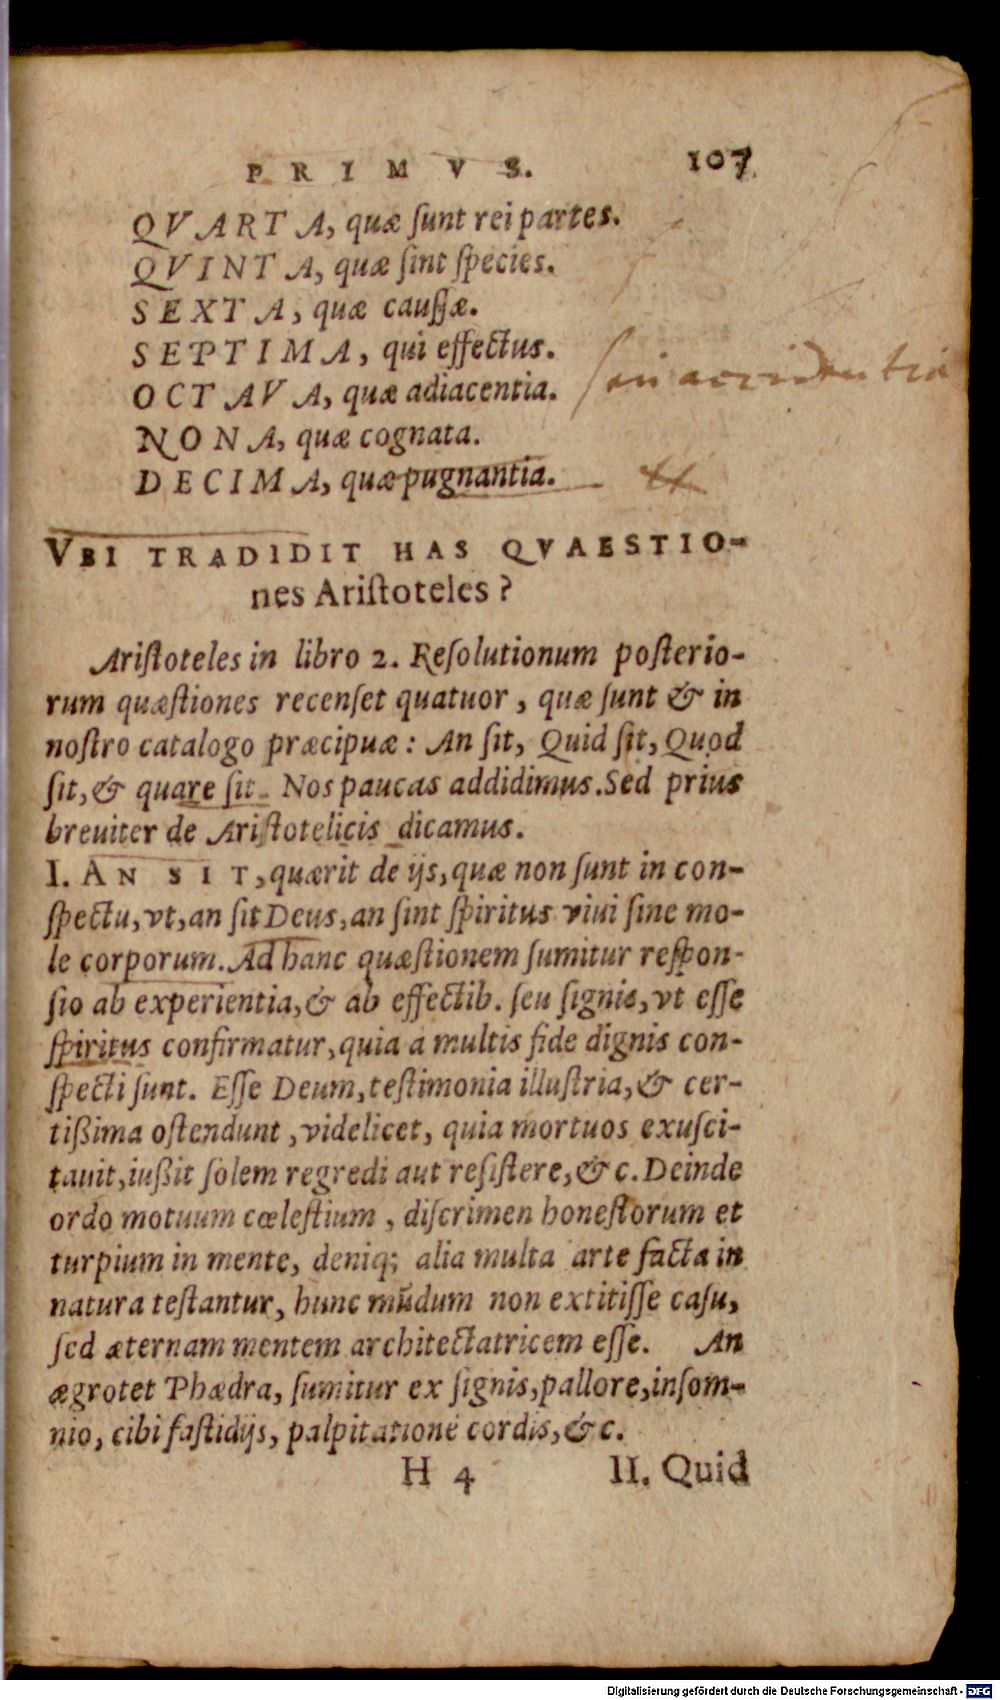 PRIMVS. 107
QVARTA, quæ ſunt rei partes.
QVINTA, quæ ſint ſpecies.
SEXTA, quæ cauſſæ.
SEPTIMA, qui effectus.
OCTAVA, quæ adiacentia. ſeu accidentia
NONA, quæ cognata.
DECIMA, quæ pugnantia.
VBI TRADIDIT HAS QVAESTIO-
nes Ariſtoteles?
Ariſtoteles in libro 2. Reſolutionum poſterio-
rum quæſtiones recenſet quatuor, quæ ſunt & in
noſtro catalogo præcipuæ: An ſit, Quid ſit, Quod
ſit, & quare ſit. Nos paucas addidimus. Sed prius
breuiter de Ariſtotelicis dicamus.
I. AN SIT, quærit de ijs, quæ non ſunt in con-
ſpectu, vt, an ſit Deus, an ſint ſpiritus viui ſine mo-
le corporum. Ad hanc quæſtionem ſumitur reſpon-
ſio ab experientia, & ab effectib. ſeu ſignis, vt eſſe
ſpiritus confirmatur, quia a multis fide dignis con-
ſpecti ſunt. Eſſe Deum, teſtimonia illuſtria, & cer-
tißima oſtendunt, videlicet, quia mortuos exuſci-
tauit, iußit ſolem regredi aut reſiſtere, &c. Deinde
ordo motuum cœleſtium, diſcrimen honeſtorum et
turpium in mente, deniq; alia multa arte facta in
natura teſtantur, hunc mūdum non extitiſſe caſu,
ſed æternam mentem architectatricem eſſe. An
ægrotet Phædra, ſumitur ex ſignis, pallore, inſom-
nio, cibi faſtidijs, palpitatione cordis, &c.
H 4 II. Quid
Digitalisierung gefördert durch die Deutsche Forschungsgemeinschaft - DFG